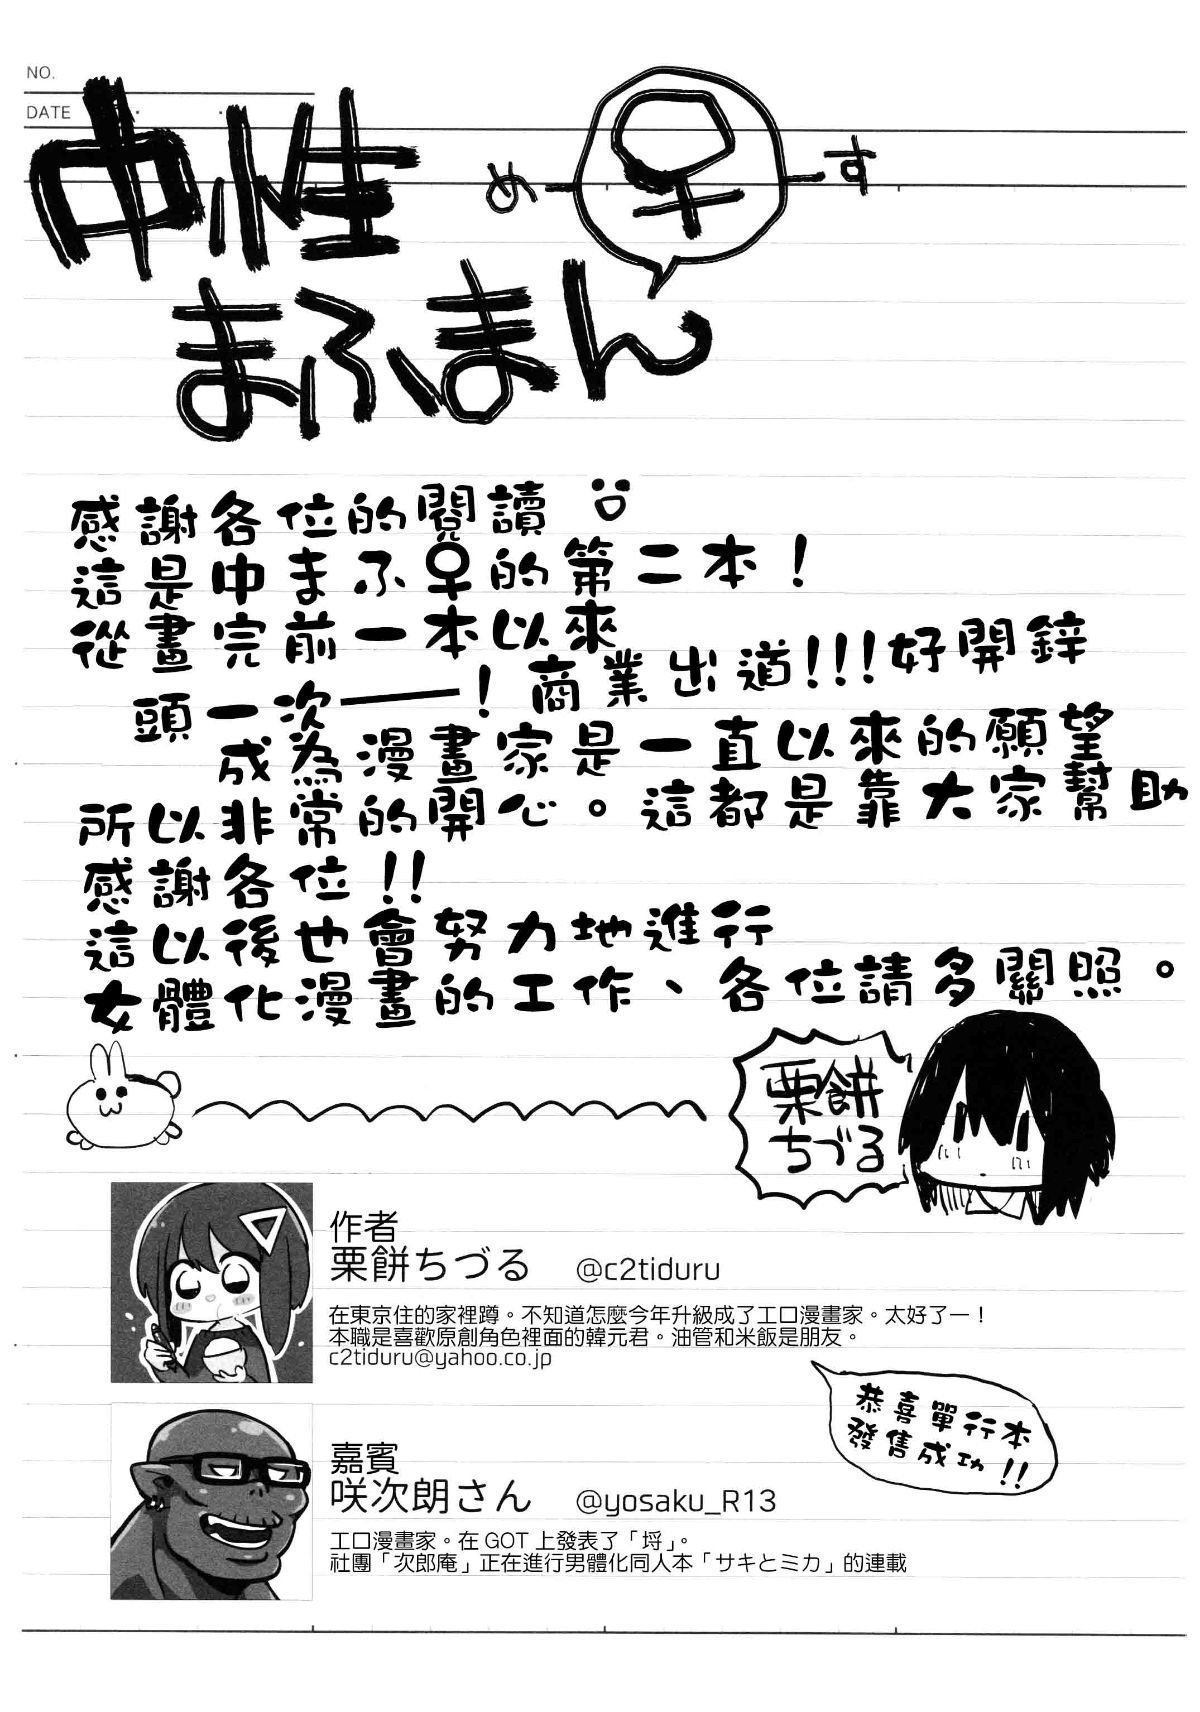 NO.
DATE
中性
め♀す
まふまん
感謝各位的閱讀
這是中まふ♀的第二本！
從畫完前一本以來
頭一次——！商業出道!!!好開鋅
成為漫畫家是一直以來的願望
所以非常的開心。這都是靠大家幫助
感謝各位!!
這以後也會努力地進行
女體化漫畫的工作、各位請多關照。
栗餅
ちづる
作者
栗餅ちづる @c2tiduru
在東京住的家裡蹲。不知道怎麼今年升級成了工口漫畫家。太好了ー！
本職是喜歡原創角色裡面的韓元君。油管和米飯是朋友。
c2tiduru@yahoo.co.jp
恭喜單行本
發售成功!!
嘉賓
咲次朗さん @yosaku_R13
工口漫畫家。在 GOT 上發表了「埒」。
社團「次郎庵」正在進行男體化同人本「サキとミカ」的連載